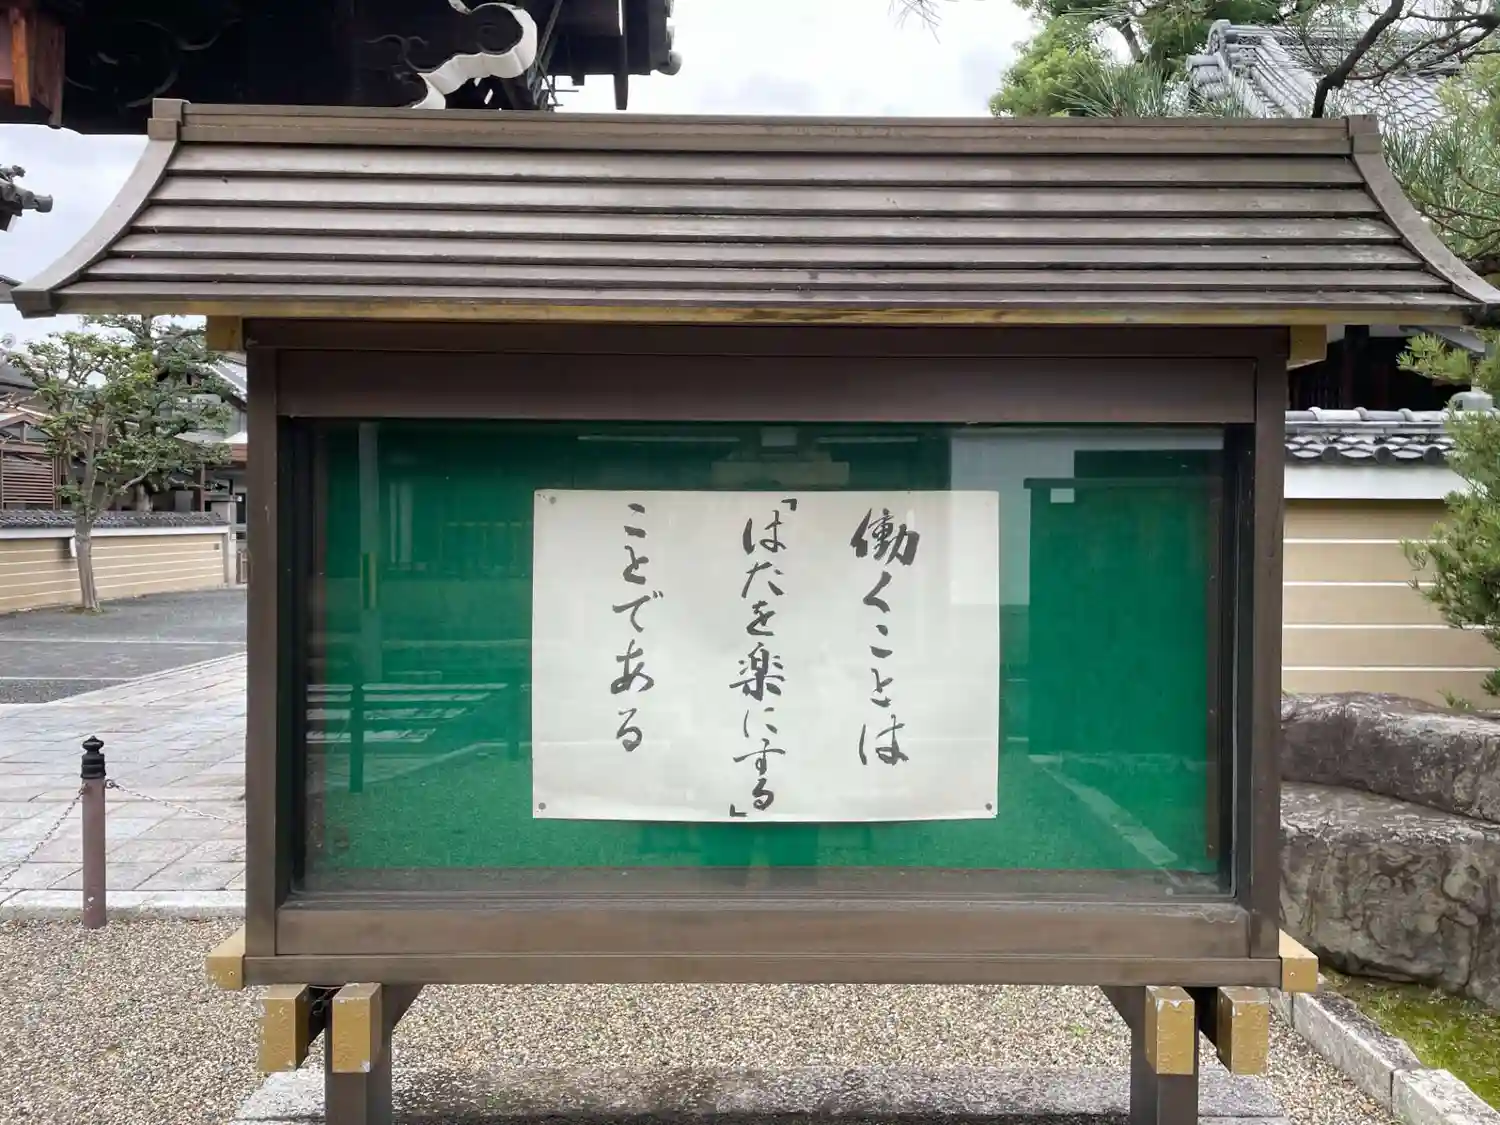 働くことは
「はたを楽にする」
ことである